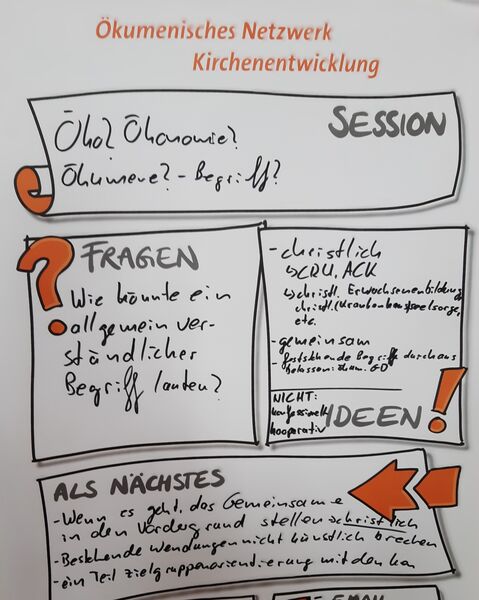 Ökumenisches Netzwerk
Kirchenentwicklung
SESSION
Öko? Ökonomie?
Ökumene? - Begriff?
FRAGEN
Wie könnte ein
allgemein ver-
ständlicher
Begriff lauten?
- christlich
↳ CRU, ACK
↳ christl. Erwachsenenbildung,
christl. Krankenhausseelsorge,
etc.
- gemeinsam
- Bestehende Begriffe durchaus
belassen: ökum. GD
NICHT:
konfessionell
kooperativ
IDEEN
ALS NÄCHSTES
- Wenn es geht, das Gemeinsame
in den Vordergrund stellen → christlich
- Bestehende Wendungen nicht künstlich brechen
- ein Teil zielgruppenorientierung mitdenken